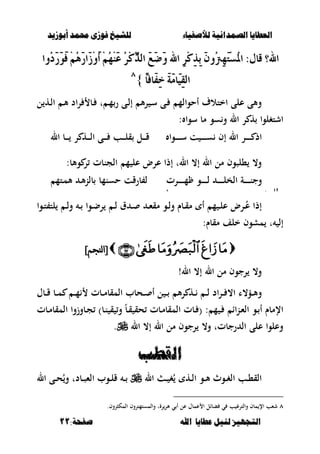 العطايا الصمدانية للأصفياء للشيخ فوزى محمد أبوزيد
الله؟ قال: الْمُسْتَهْتِرُونَ بِذِكْرِ الله وَضَعَ الذِّكْرُ عَنْهُمْ أَوْزَارَهُمْ فَوَرَدُوا
الْقِيَامَةَ خِفَافًا } ^
وهى على اختلاف أحوالهم فى سيرهم إلى ربهم، فالأفراد هم الذين
اشتغلوا بذكر الله ونسو ما سواه:
اذكر الله إن نسيت سواه قل بقلب فى الذكر يا الله
ولا يطلبون من الله إلا الله، إذا عرض عليهم الجنات تركوها:
وجنة الخلد لو ظهرت لفارقت حسنها بالزهد همتهم
إذا عُرض عليهم أى مقام ولو مقعد صدق لم يرضوا به ولم يلتفتوا
إليه، يمشون خلف مقام:
﴿ مَا زَاغَ ٱلْبَصَرُ وَمَا طَغَىٰ ﴾ [النجم]
ولا يرجون من الله إلا الله!
وهؤلاء الأفراد لم نذكرهم بين أصحاب المقامات لأنهم كما قال
الإمام أبو العزائم فيهم: (فات المقامات تحقيقاً وتيقينا) تجاوزوا المقامات
وعلوا على الدرجات، ولا يرجون من الله إلا الله ﷻ.
القطب
القطب الغوث هو الذى يُغيث الله ﷻ به قلوب العباد، ويُحى الله
٨ شعب الإيمان والترغيب في فضائل الأعمال عن أبي هريرة، والمستهترون المكثرون.
التجهيز لنيل عطايا الله صفحة:٢٢